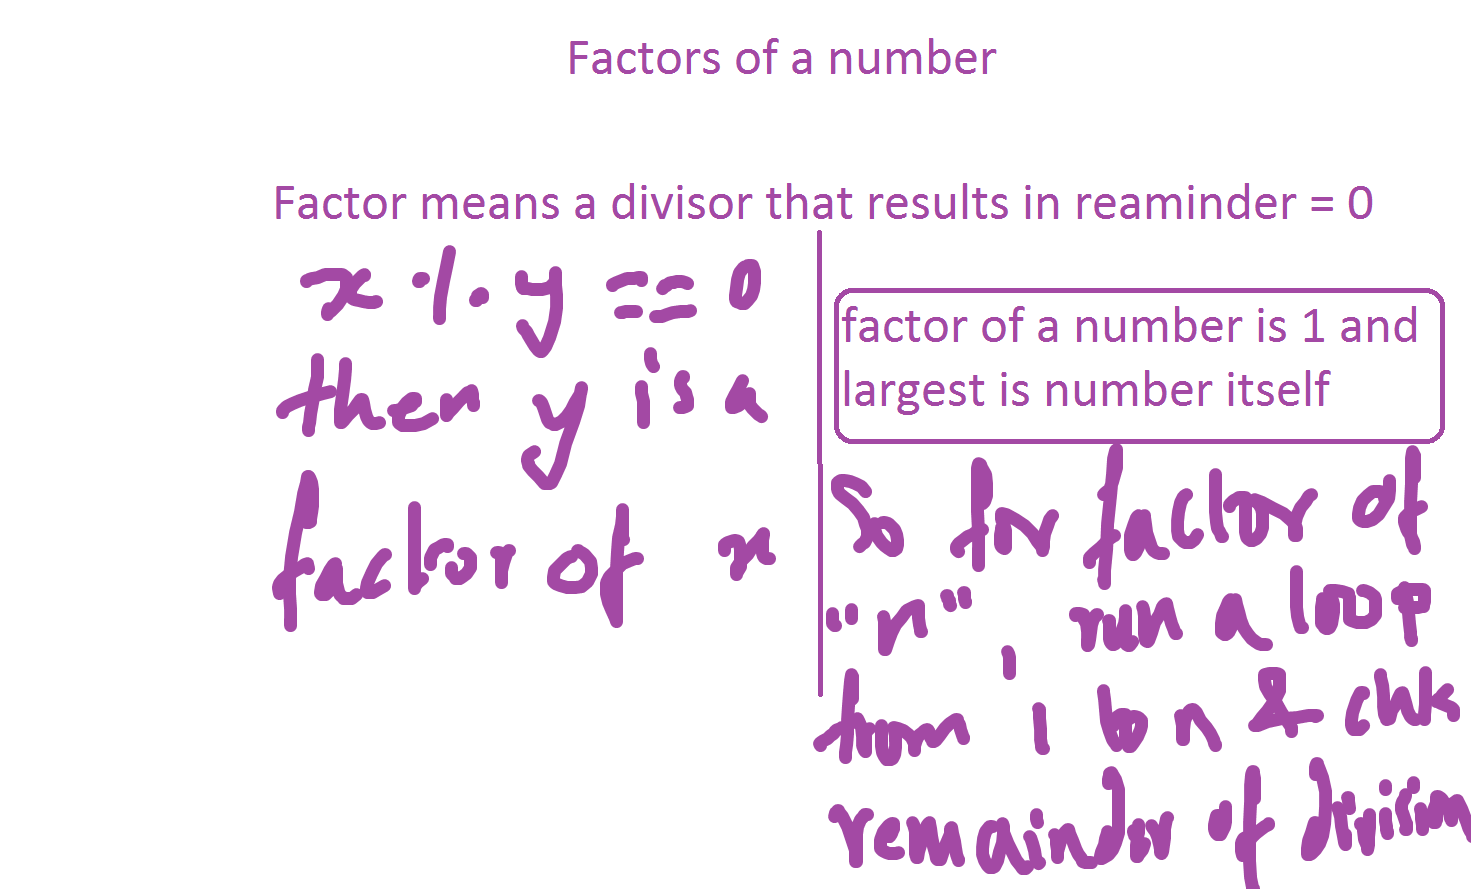 Factors of a number
Factor means a divisor that results in reaminder = 0
x % y == 0
then y is a
factor of x
factor of a number is 1 and
largest is number itself
So for factor of
"n", run a loop
from 1 to n & chk
remainder of division